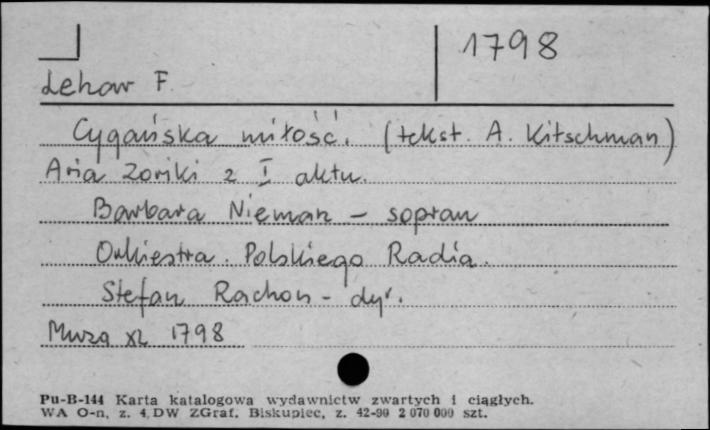 1798
Lehar F.
Cygańska miłość. (tekst. A. Kitschman)
Aria Zoriki z I aktu.
Barbara Nieman - sopran
Orkiestra Polskiego Radia.
Stefan Rachoń - dyr.
Muza XL 1798
Pu-B-144 Karta katalogowa wydawnictw zwartych i ciągłych.
WA O-n, z. 4, DW ZGraf. Biskupiec, z. 42-90 2 070 000 szt.